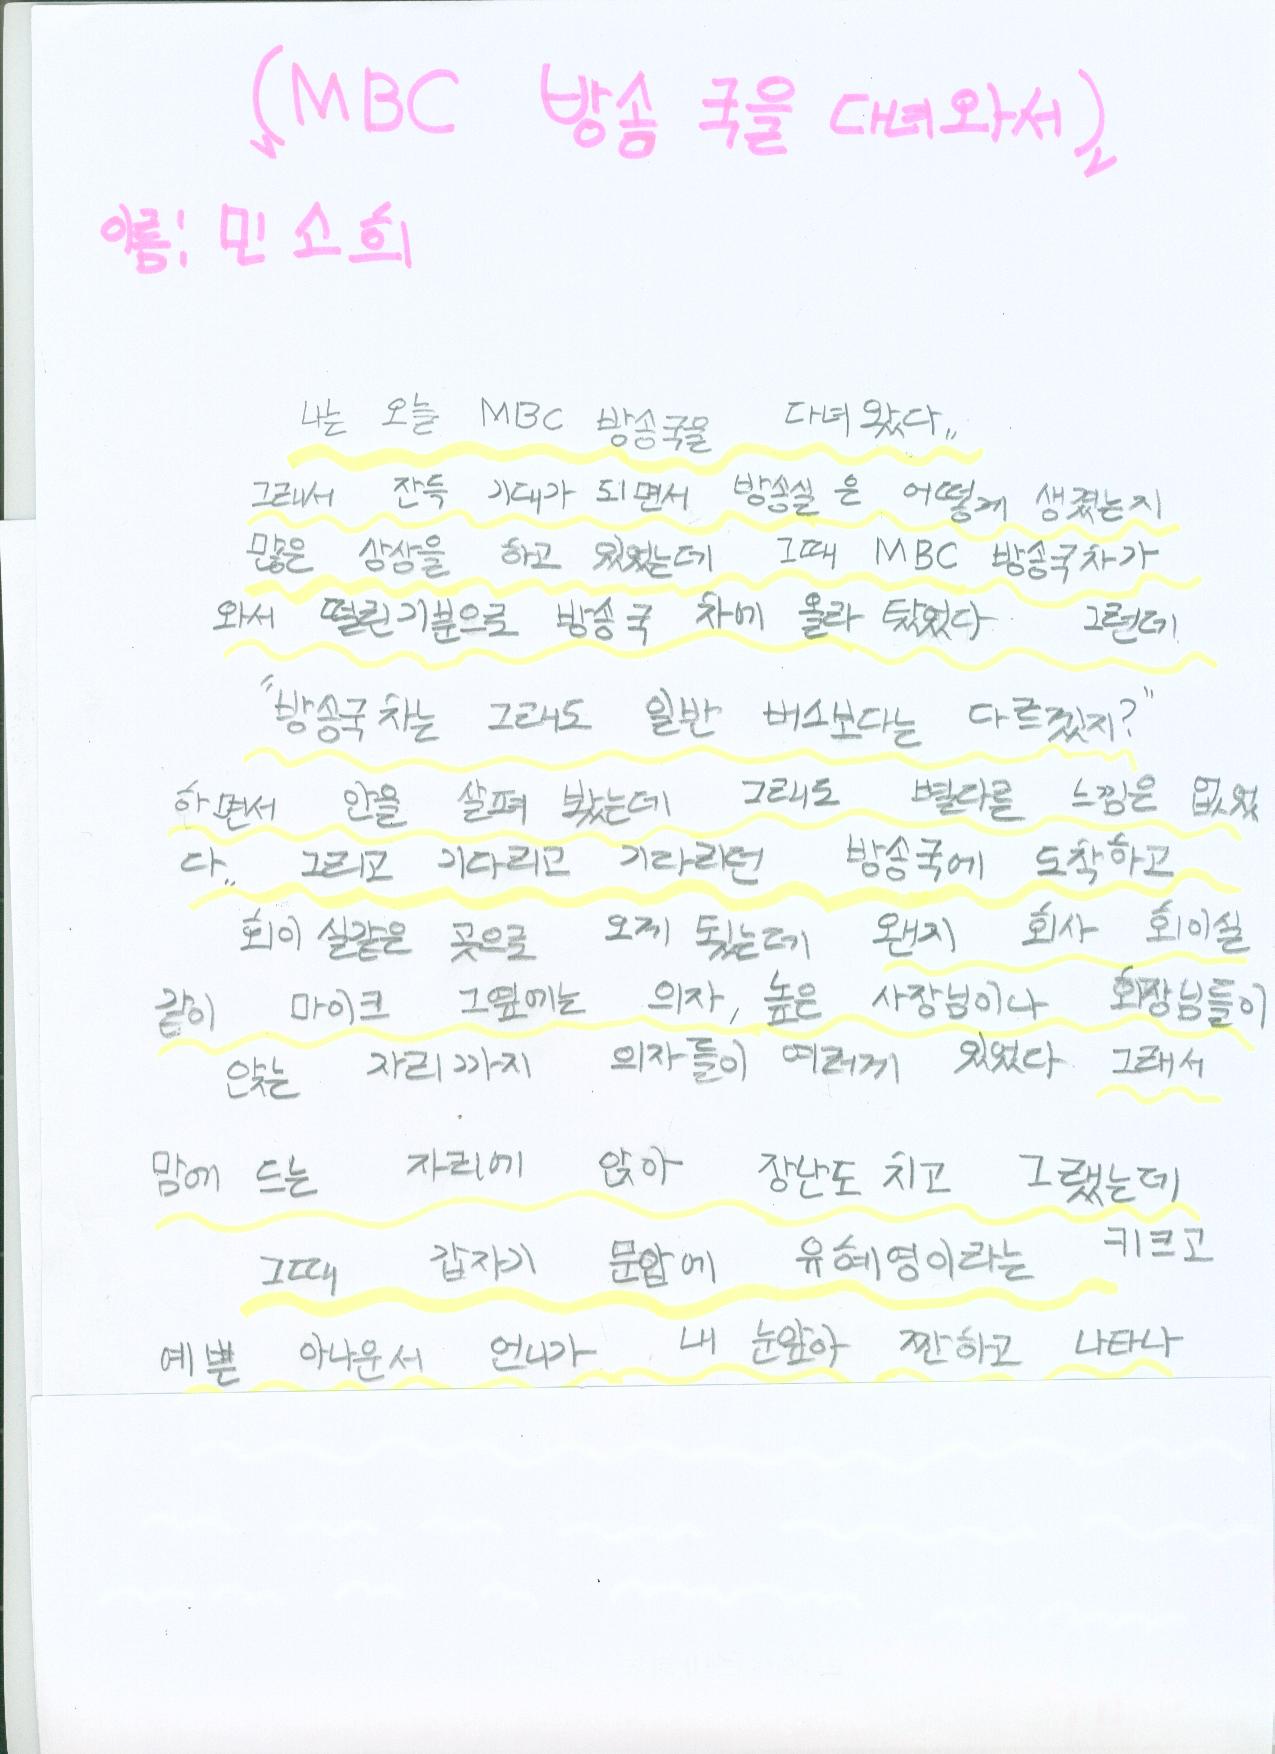 (MBC 방송 국을 다녀와서)
이름: 민소희
나는 오늘 MBC 방송국을 다녀왔다..
그래서 잔득 기대가 되면서 방송실은 어떻게 생겼는지
많은 상상을 하고 있었는데 그때 MBC 방송국차가
와서 떨린기분으로 방송국 차에 올라 탔었다 그런데
"방송국차는 그래도 일반 버스보다는 다르겠지?"
하면서 안을 살펴 봤는데 그래도 별다를 느낌은 없었
다.. 그리고 기다리고 기다리던 방송국에 도착하고
회이실같은 곳으로 오게 됬는데 왠지 회사 회이실
같이 마이크 그옆에는 의자, 높은 사장님이나 회장님들이
앉는 자리까지 의자들이 여러게 있었다 그래서
맘에 드는 자리에 앉아 장난도 치고 그랬는데
그때 갑자기 문앞에 유혜영이라는 키크고
예쁜 아나운서 언니가 내 눈앞아 짠하고 나타나